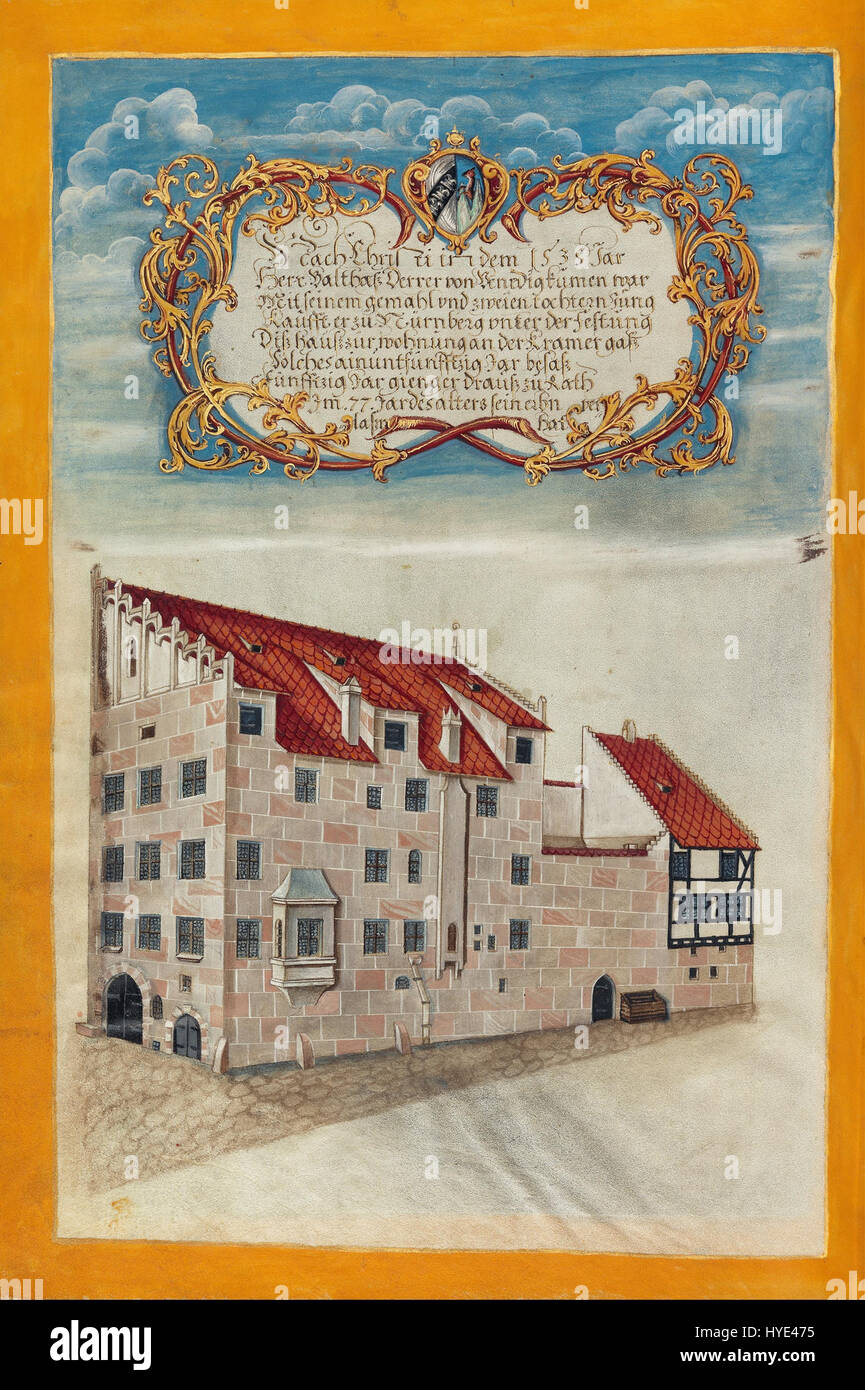 Nach Christi in dem 1538 Jar
Herr Balthaß Derrer von Venedig kumen war
Mit seinem gemahl vnd zweien tochtern Jung
Kaufft er zu Nürnberg vnter der Festung
Diß hauß zur wohnung an der Kramer gaß
Solches ainuntfunfftzig Jar besaß
Funfftzig Jar gienger drauß zu Rath
Im 77 Jar des alters sein
alamy
alamy stock photo
HYE475
www.alamy.com